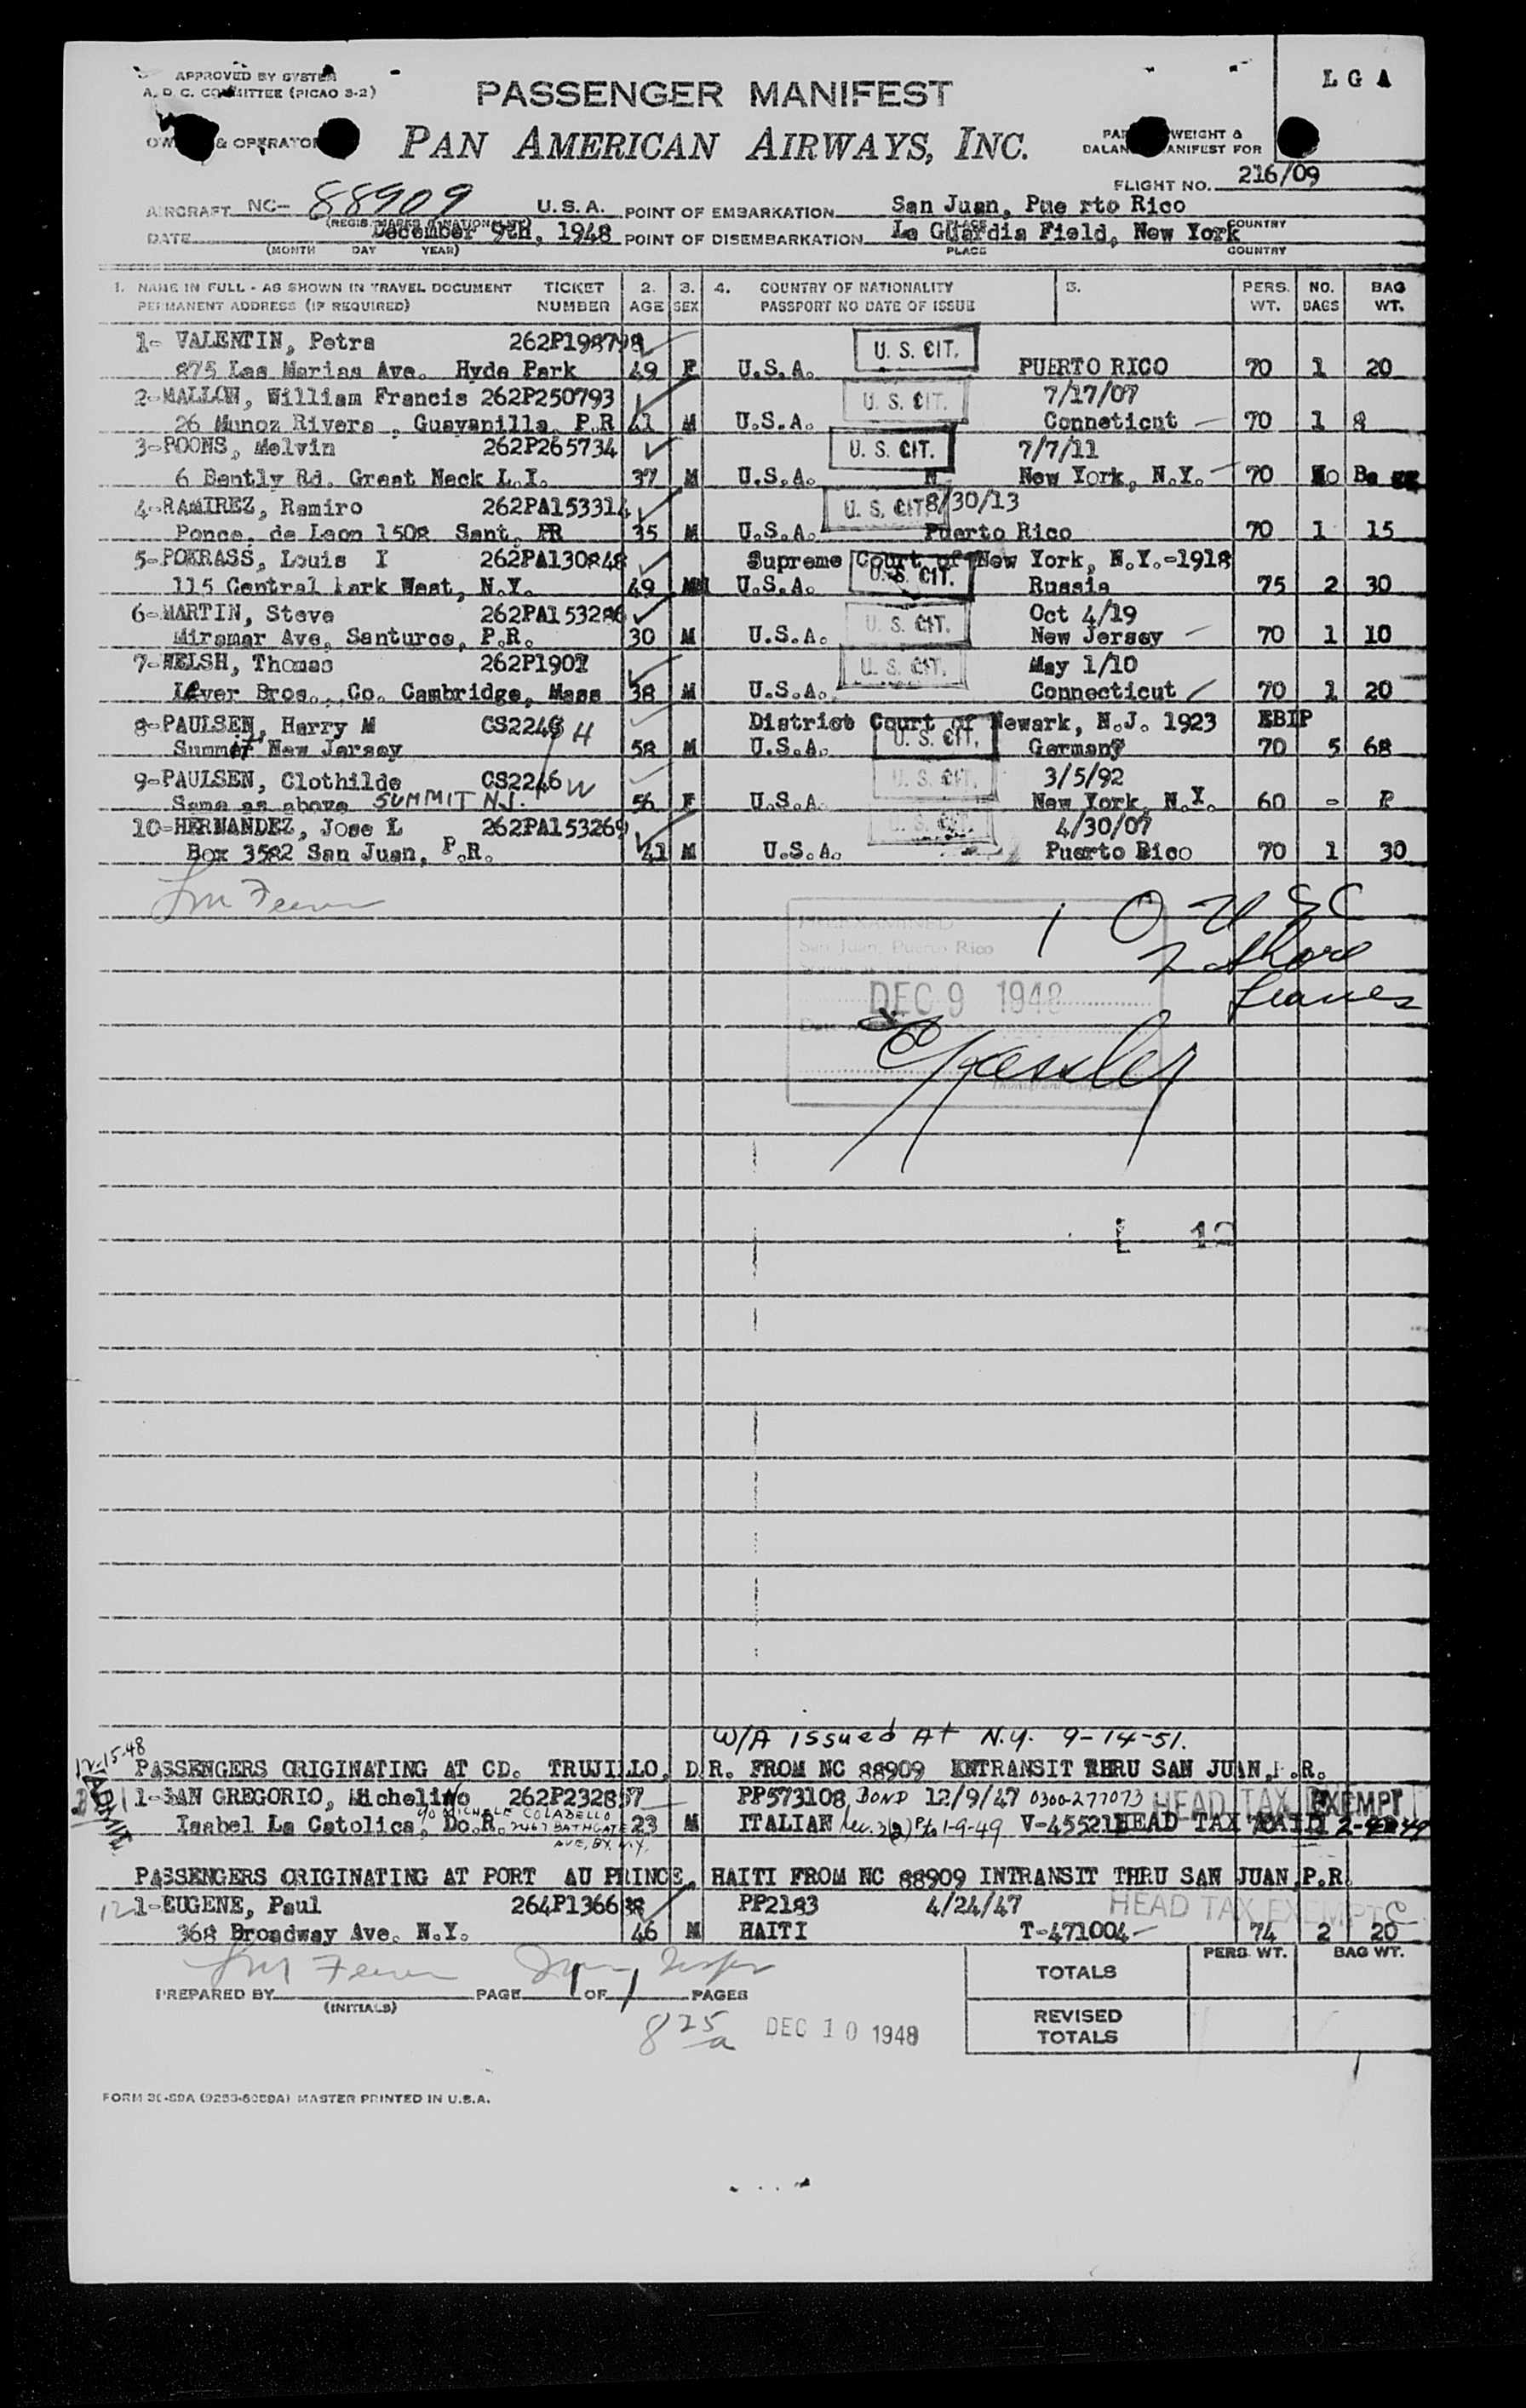 APPROVED BY SYSTEM
A. D. C. COMMITTEE (PICAO 3-2)
L G A
PASSENGER MANIFEST
PAN AMERICAN AIRWAYS, INC.
& OPERATOR
WEIGHT &
MANIFEST FOR
FLIGHT NO. 216/09
AIRCRAFT NC- 88909 U.S.A. POINT OF EMBARKATION San Juan, Pue rto Rico
DATE December 9th, 1948 POINT OF DISEMBARKATION La Guardia Field, New York
(MONTH DAY YEAR) PLACE COUNTRY
1. NAME IN FULL - AS SHOWN IN TRAVEL DOCUMENT TICKET 2. 3. 4. COUNTRY OF NATIONALITY 5. PERS. NO. BAG
PERMANENT ADDRESS (IF REQUIRED) NUMBER AGE SEX PASSPORT NO DATE OF ISSUE WT. BAGS WT.
1- VALENTIN, Petra 262P198798 U. S. CIT.
875 Las Marias Ave. Hyde Park 49 F U.S.A. PUERTO RICO 70 1 20
2-MALLOW, William Francis 262P250793 U. S. CIT. 7/17/07
26 Munoz Rivera , Guayanilla, P.R 41 M U.S.A. Conneticut 70 1 8
3-ROONS, Melvin 262P265734 U. S. CIT. 7/7/11
6 Bently Rd. Great Neck L.I. 37 M U.S.A. New York, N.Y. 70 No Ba gg
4-RAMIREZ, Ramiro 262PA153314 U. S. CIT. 8/30/13
Ponce, de Leon 1508 Sant, PR 35 M U.S.A. Puerto Rico 70 1 15
5-POKRASS, Louis I 262PA130848 Supreme Court of New York, N.Y.-1918
115 Central Park West, N.Y. 49 M U.S.A. U. S. CIT. Russia 75 2 30
6-MARTIN, Steve 262PA153286 U. S. CIT. Oct 4/19
Miramar Ave, Santurce, P.R. 30 M U.S.A. New Jersey 70 1 10
7-WELSH, Thomas 262P1907 U. S. CIT. May 1/10
Lever Bros., Co. Cambridge, Mass 38 M U.S.A. Connecticut 70 1 20
8-PAULSEN, Harry M CS2246 H District Court of Newark, N.J. 1923 EBIP
Summit New Jersey 58 M U.S.A. U. S. CIT. Germany 70 5 68
9-PAULSEN, Clothilde CS2246 W U. S. CIT. 3/5/92
Same as above SUMMIT N.J. 56 F U.S.A. New York, N.Y. 60 -
10-HERNANDEZ, Jose L 262PA153269 U. S. CIT. 4/30/07
Box 3582 San Juan, P.R. 41 M U.S.A. Puerto Rico 70 1 30
PREEXAMINED
San Juan, Puerto Rico
DEC 9 1948
shore
leaves
W/A issued At N.Y. 9-14-51.
12-15-48
PASSENGERS ORIGINATING AT CD. TRUJILLO, D.R. FROM NC 88909 ENTRANSIT THRU SAN JUAN, P.R.
1-SAN GREGORIO, Michelino 262P232857 PP573108 BOND 12/9/47 0300-277073 HEAD TAX EXEMPT
Isabel La Catolica, Do.R. c/o MICHELE COLABELLO 2467 BATHGATE AVE, BX. N.Y. 23 M ITALIAN 1-9-49 HEAD TAX PAID
PASSENGERS ORIGINATING AT PORT AU PRINCE, HAITI FROM NC 88909 INTRANSIT THRU SAN JUAN,P.R.
12 1-EUGENE, Paul 264P136638 PP2183 4/24/47 HEAD TAX EXEMPT
368 Broadway Ave. N.Y. 46 M HAITI T-471004- 74 2 20
PERS. WT. BAG WT.
PREPARED BY PAGE 1 OF 1 PAGES TOTALS
(INITIALS)
825a DEC 10 1948 REVISED
TOTALS
MASTER PRINTED IN U.S.A.